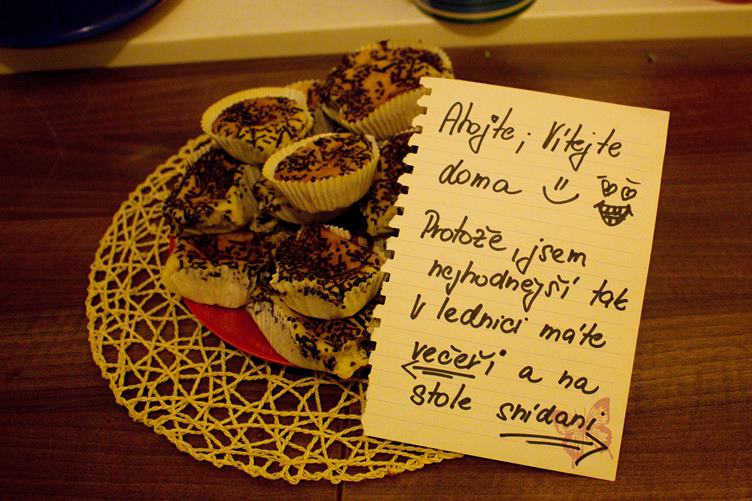 Ahojte, Vítejte
doma
Protože, jsem
nejhodnejší tak
V lednici máte
večeři a na
stole snídani